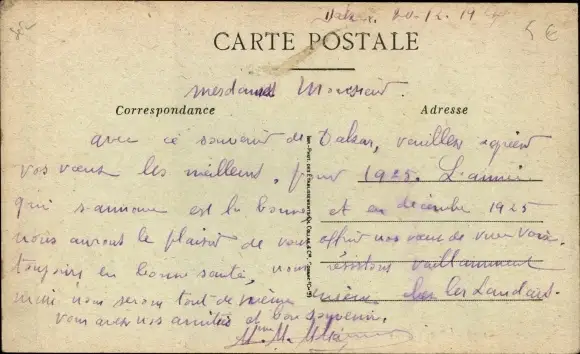 Dakar, 20-12-19
5 €
CARTE POSTALE
Mesdames Monsieur
Correspondance
Adresse
avec ce souvenir de Dakar, veuillez agréer
vos vœux les meilleurs, pour 1925. L'année
qui s'annonce est la bonne et en décembre 1925
nous aurons le plaisir de vous offrir nos vœux de vive voix.
toujours en bonne santé, nous résistons vaillamment
mais nous serons tout de même chez les Landais.
vous avez nos amitiés et bon souvenir.
Mme M.